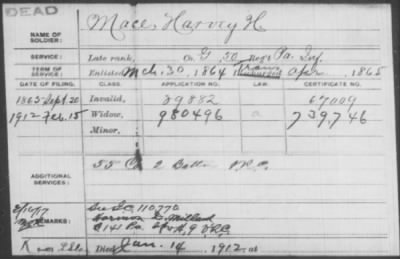 DEAD
NAME OF SOLDIER: Mace, Harvey H.
SERVICE: Late rank, Co. G, 50 Reg't Pa. Inf.
TERM OF SERVICE: Enlisted Mch. 30, 1864 Apr , 1865
DATE OF FILING. CLASS. APPLICATION NO. LAW. CERTIFICATE NO.
1865 Sept. 20 Invalid, 59882 67009
1912 Feb. 15 Widow, 980496 a 739,746
Minor,
ADDITIONAL SERVICES: 55 Co 2 Batt V.R.C.
REMARKS: See S.C. 110770
C 141 Pa. V.R.C.
Died Jan. 14, 1912, at